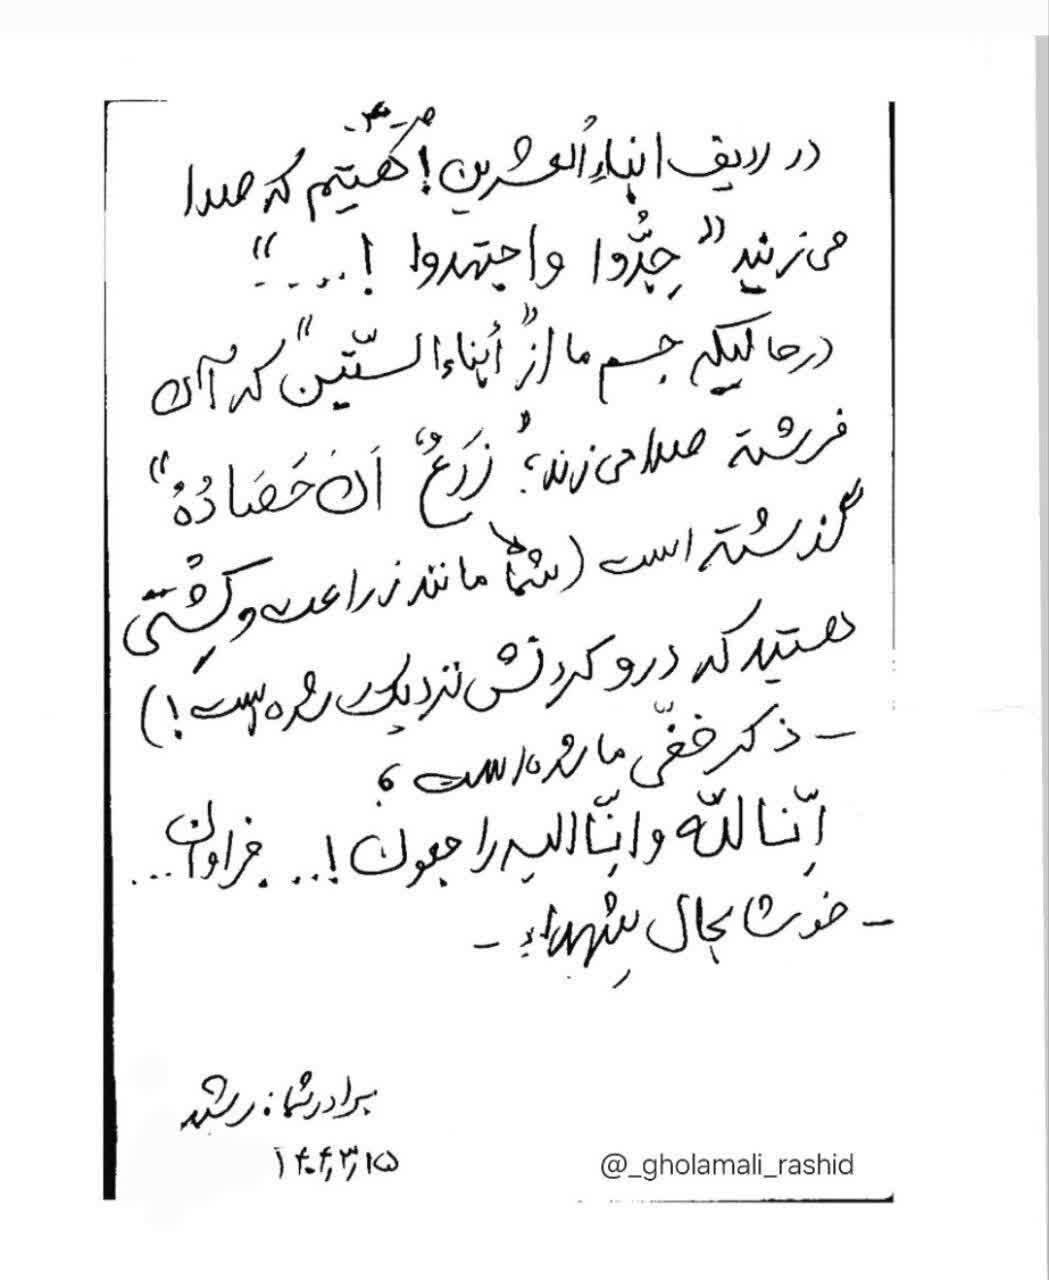 -۳-
در ردیف ابناءُ العشرین! گفتیم که صدا
می‌زنند «جِدُّوا واجتهدوا !....»
درحالیکه جسم ما از «أبناء السّتّین» که آن
فرشته صدا می‌زند؛ «زَرَعٌ آنَ حَصَادُهُ»
گذشته است (شما مانند زراعت و کِشْتی
هستید که درو کردنش نزدیک شده است!)
- ذکر خفّی ما شده است؛
اِنّا للّه و اِنّا الیه راجعون!... فراوان...
- خوشا بحال شهداءِ -
برادر شما: رشید
۱۴۰۴,۳,۱۵
@_gholamali_rashid